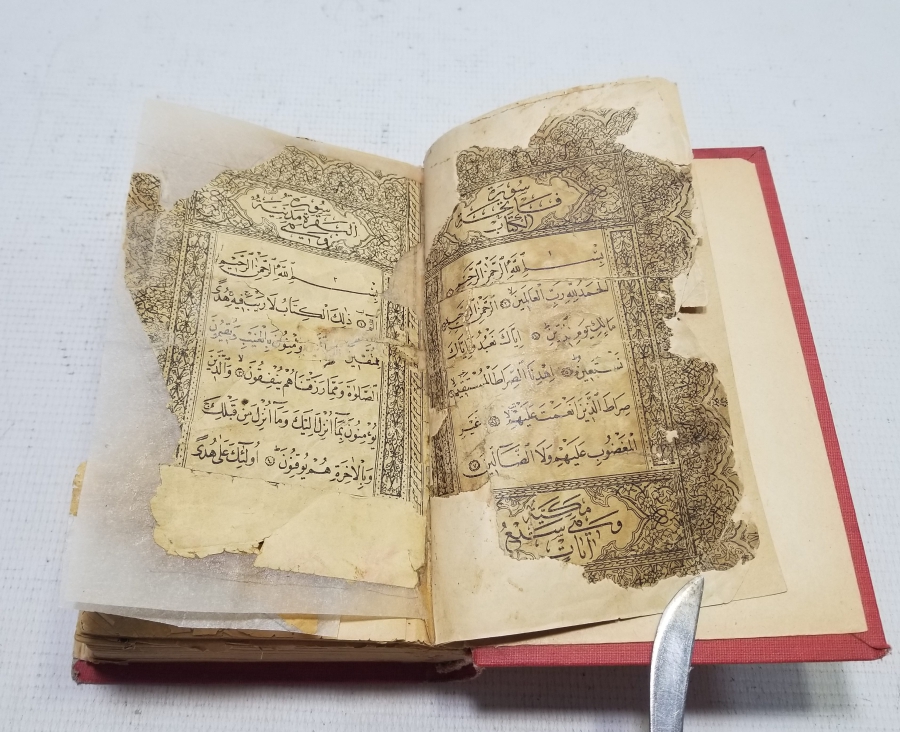 سورة
فاتحة
الكتاب
١
بسم الله الرحمن الرحيم
الحمد لله رب العالمين الرحمن الرحيم
مالك يوم الدين اياك نعبد واياك
نستعين اهدنا الصراط المستقيم
صراط الذين انعمت عليهم غير
المغضوب عليهم ولا الضالين
مكية
وهي سبع
آيات
سورة
البقرة مدنية
وهي
٢
بسم الله الرحمن الرحيم
ذلك الكتاب لا ريب فيه هدى
للمتقين يؤمنون بالغيب ويقيمون
الصلوة ومما رزقناهم ينفقون والذين
يؤمنون بما انزل اليك وما انزل من قبلك
وبالاخرة هم يوقنون اولئك على هدى